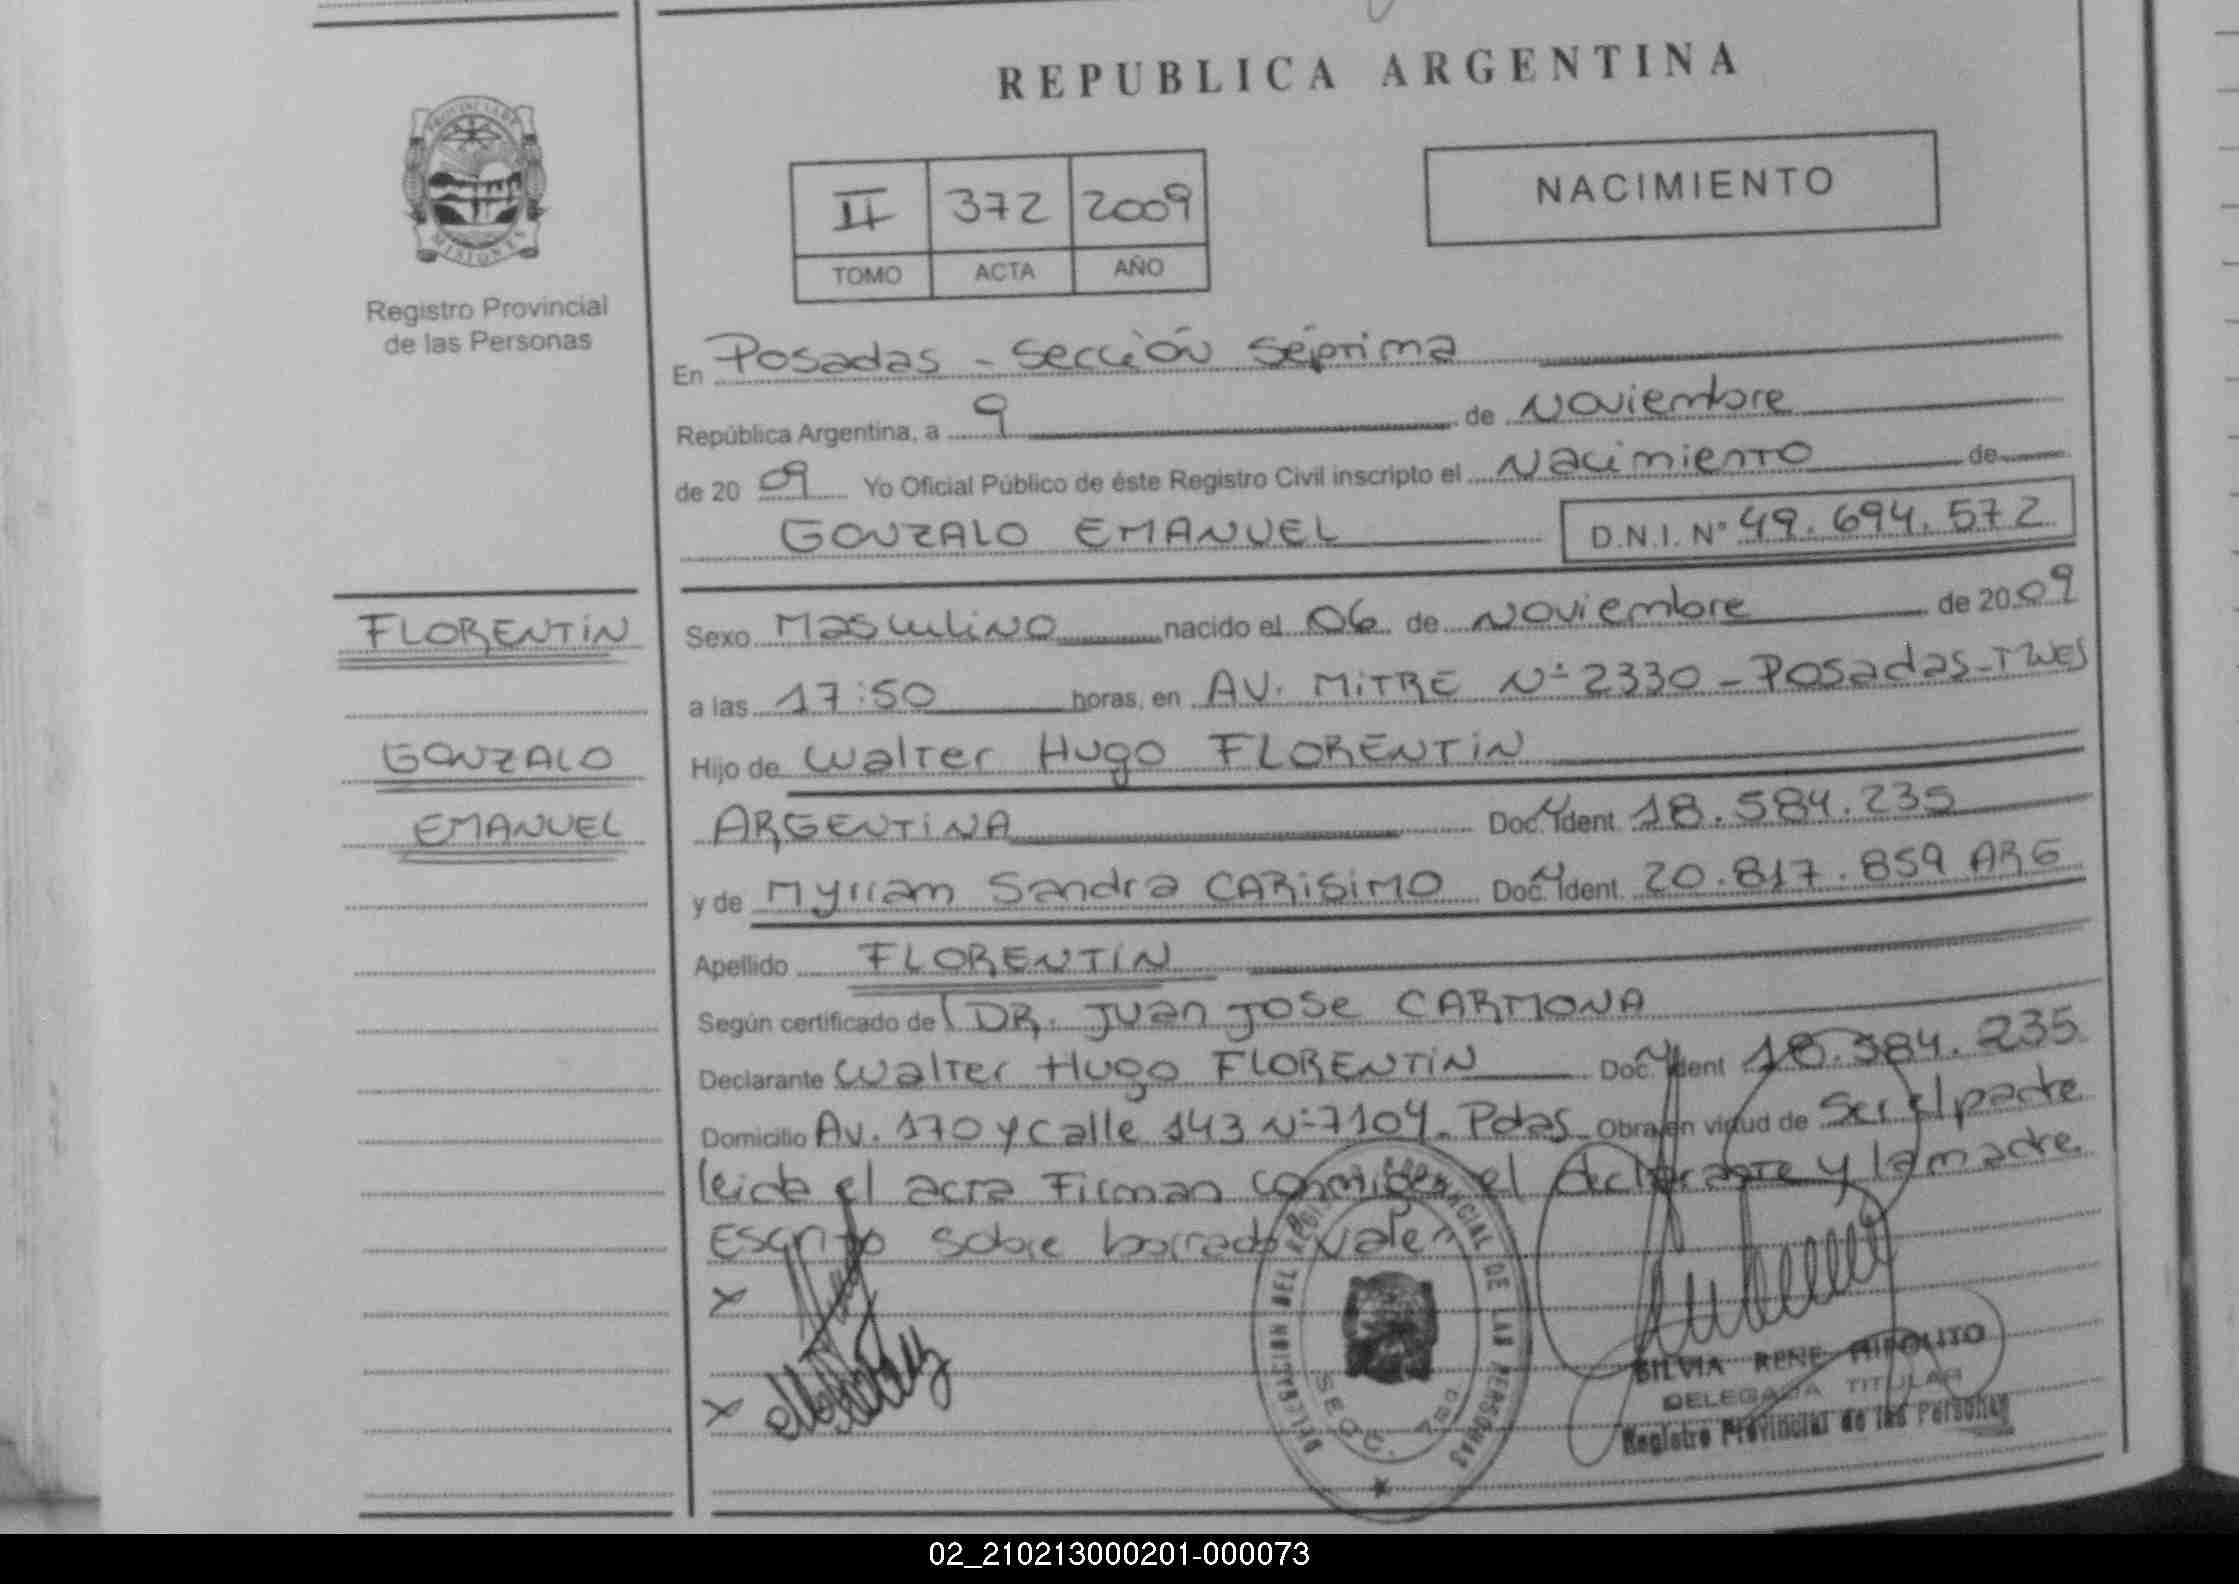 REPUBLICA ARGENTINA
PROVINCIA DE
MISIONES
Registro Provincial
de las Personas
II 372 2009
TOMO ACTA AÑO
NACIMIENTO
En Posadas - Sección Séptima
República Argentina, a 9 de Noviembre
de 2009 Yo Oficial Público de éste Registro Civil inscripto el Nacimiento de
GONZALO EMANUEL D.N.I. Nº 49.694.572
FLORENTIN
GONZALO
EMANUEL
Sexo Masculino nacido el 06 de Noviembre de 2009
a las 17:50 horas, en AV. MITRE Nº 2330 - Posadas
Hijo de Walter Hugo FLORENTIN
ARGENTINA Doc. Ident. 18.584.235
y de Myriam Sandra CARISIMO Doc. Ident. 20.817.859 ARG
Apellido FLORENTIN
Según certificado de DR. Juan Jose CARMONA
Declarante Walter Hugo FLORENTIN Doc. Ident 18.584.235
Domicilio Av. 170 y calle 143 Nº 7104 - Pdas Obra en virtud de Ser el padre
leida el acta Firman conmigo el declarante y la madre
Escrito sobre borrado vale
DELEGACION DEL REGISTRO PROVINCIAL DE LAS PERSONAS
SECC. 7ma
SILVIA RENE HIPOLITO
DELEGADA TITULAR
Registro Provincial de las Personas
02_210213000201-000073